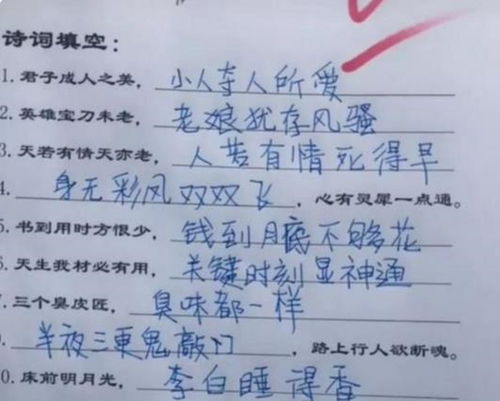 诗词填空：
1. 君子成人之美，小人夺人所爱
2. 英雄宝刀未老，老娘犹存风骚
3. 天若有情天亦老，人若有情死得早
4. 身无彩风双双飞，心有灵犀一点通。
5. 书到用时方恨少，钱到月底不够花
6. 天生我材必有用，关键时刻显神通
7. 三个臭皮匠，臭味都一样
9. 半夜三更鬼敲门，路上行人欲断魂。
0. 床前明月光，李白睡得香